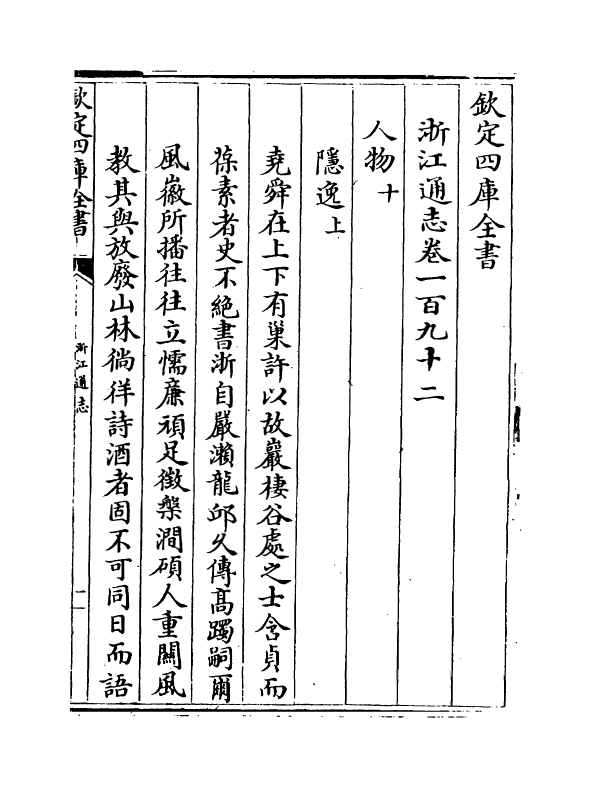 欽定四庫全書
浙江通志卷一百九十二
人物十
隱逸上
堯舜在上下有巢許以故巖棲谷處之士含貞而
葆素者史不絶書浙自嚴瀨龍邱乆傳髙躅嗣爾
風徽所播往往立懦亷頑足徴槃澗碩人重闗風
教其與放廢山林徜徉詩酒者固不可同日而語
欽定四庫全書
浙江通志
一